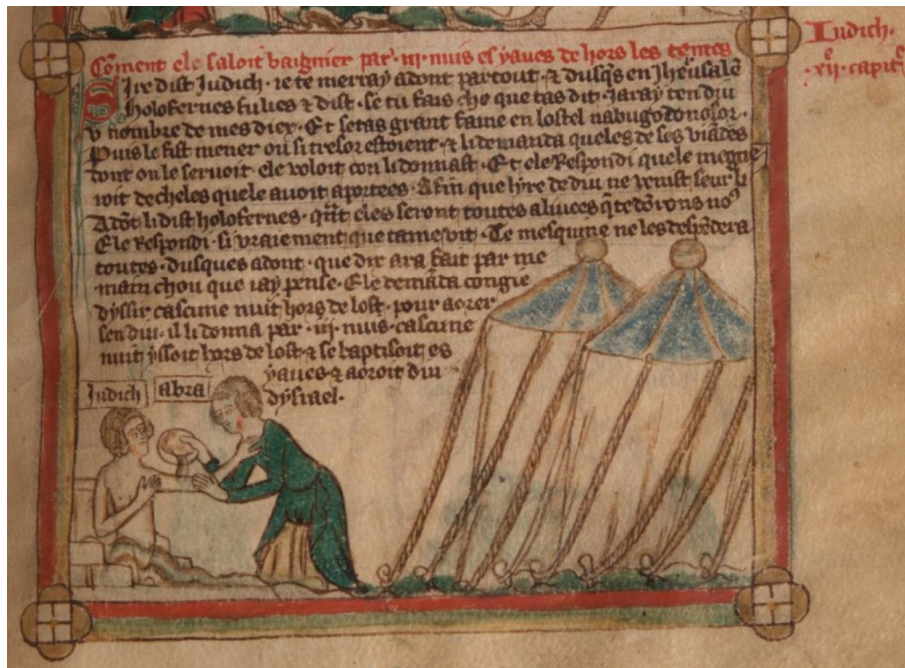 Coment ele saloit baignier par · iii · nuis es yaues de hors les tentes
Sire dist Judich · ie te merray adont partout · & dusqs en Jherusalē
holofernes fu lies & dist · se tu fais che que tas dit · Jaray ten diu
v nombre de mes diex · Et seras grant fame en lostel nabugodonosor ·
Puis le fist mener ou si tresor estoient · & li demanda queles de ses viādes
dont on le seruoit · ele voloit con li donnast · Et ele Respondi quele megne
roit de cheles quele auoit aportees · Afin que lyre de diu ne venist seur li
Adōt li dist holofernes · qñt eles seront toutes aliuees q te dōrons noꝰ
Ele Respondi · si vraiement que tame vit · Te mesquine ne les despēdera
toutes · dusques adont · que dix ara fait par me
main chou que iay pense · Ele demāda congie
dyssir cascune nuit hors de lost · pour aorer
sen diu · il li donna par · iii · nuis · cascune
nuit yssoit hors de lost · & se baptisoit es
yaues · & aoroit diu
dysrael ·
Judich
abra
Iudich ·
· xii · capitͤ